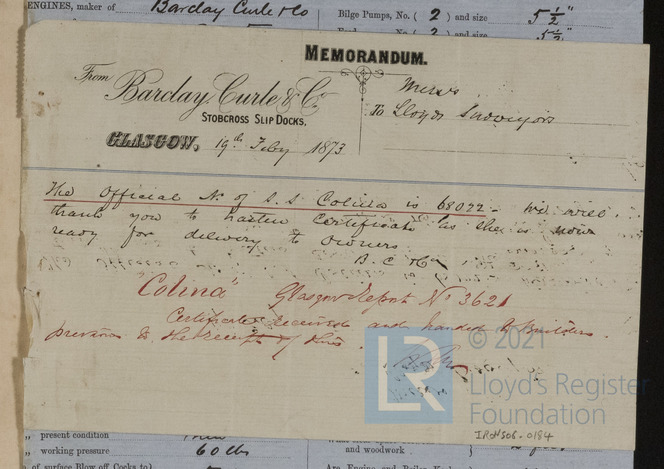 ENGINES, maker of Barclay Curle & Co
Bilge Pumps, No. ( 2 ) and size 5 ½"
No. ( 2 ) and size 5½"
MEMORANDUM.
From
Barclay, Curle & Co
STOBCROSS SLIP DOCKS,
GLASGOW, 19th Feby 1873
Messrs
To Lloyds Surveyors
The Official No. of S.S. Colina is 68022 - We will
thank you to hasten Certificate as she is now
ready for delivery to Owners
B. C & Co
"Colina" Glasgow Report No 3621
Certificate received and handed to Builders
previous to the receipt of this
© 2021
LR
Lloyd's Register
Foundation
IRON306-0184
" present condition
" working pressure 60 lbs
of surface Blow off Cocks to
and woodwork